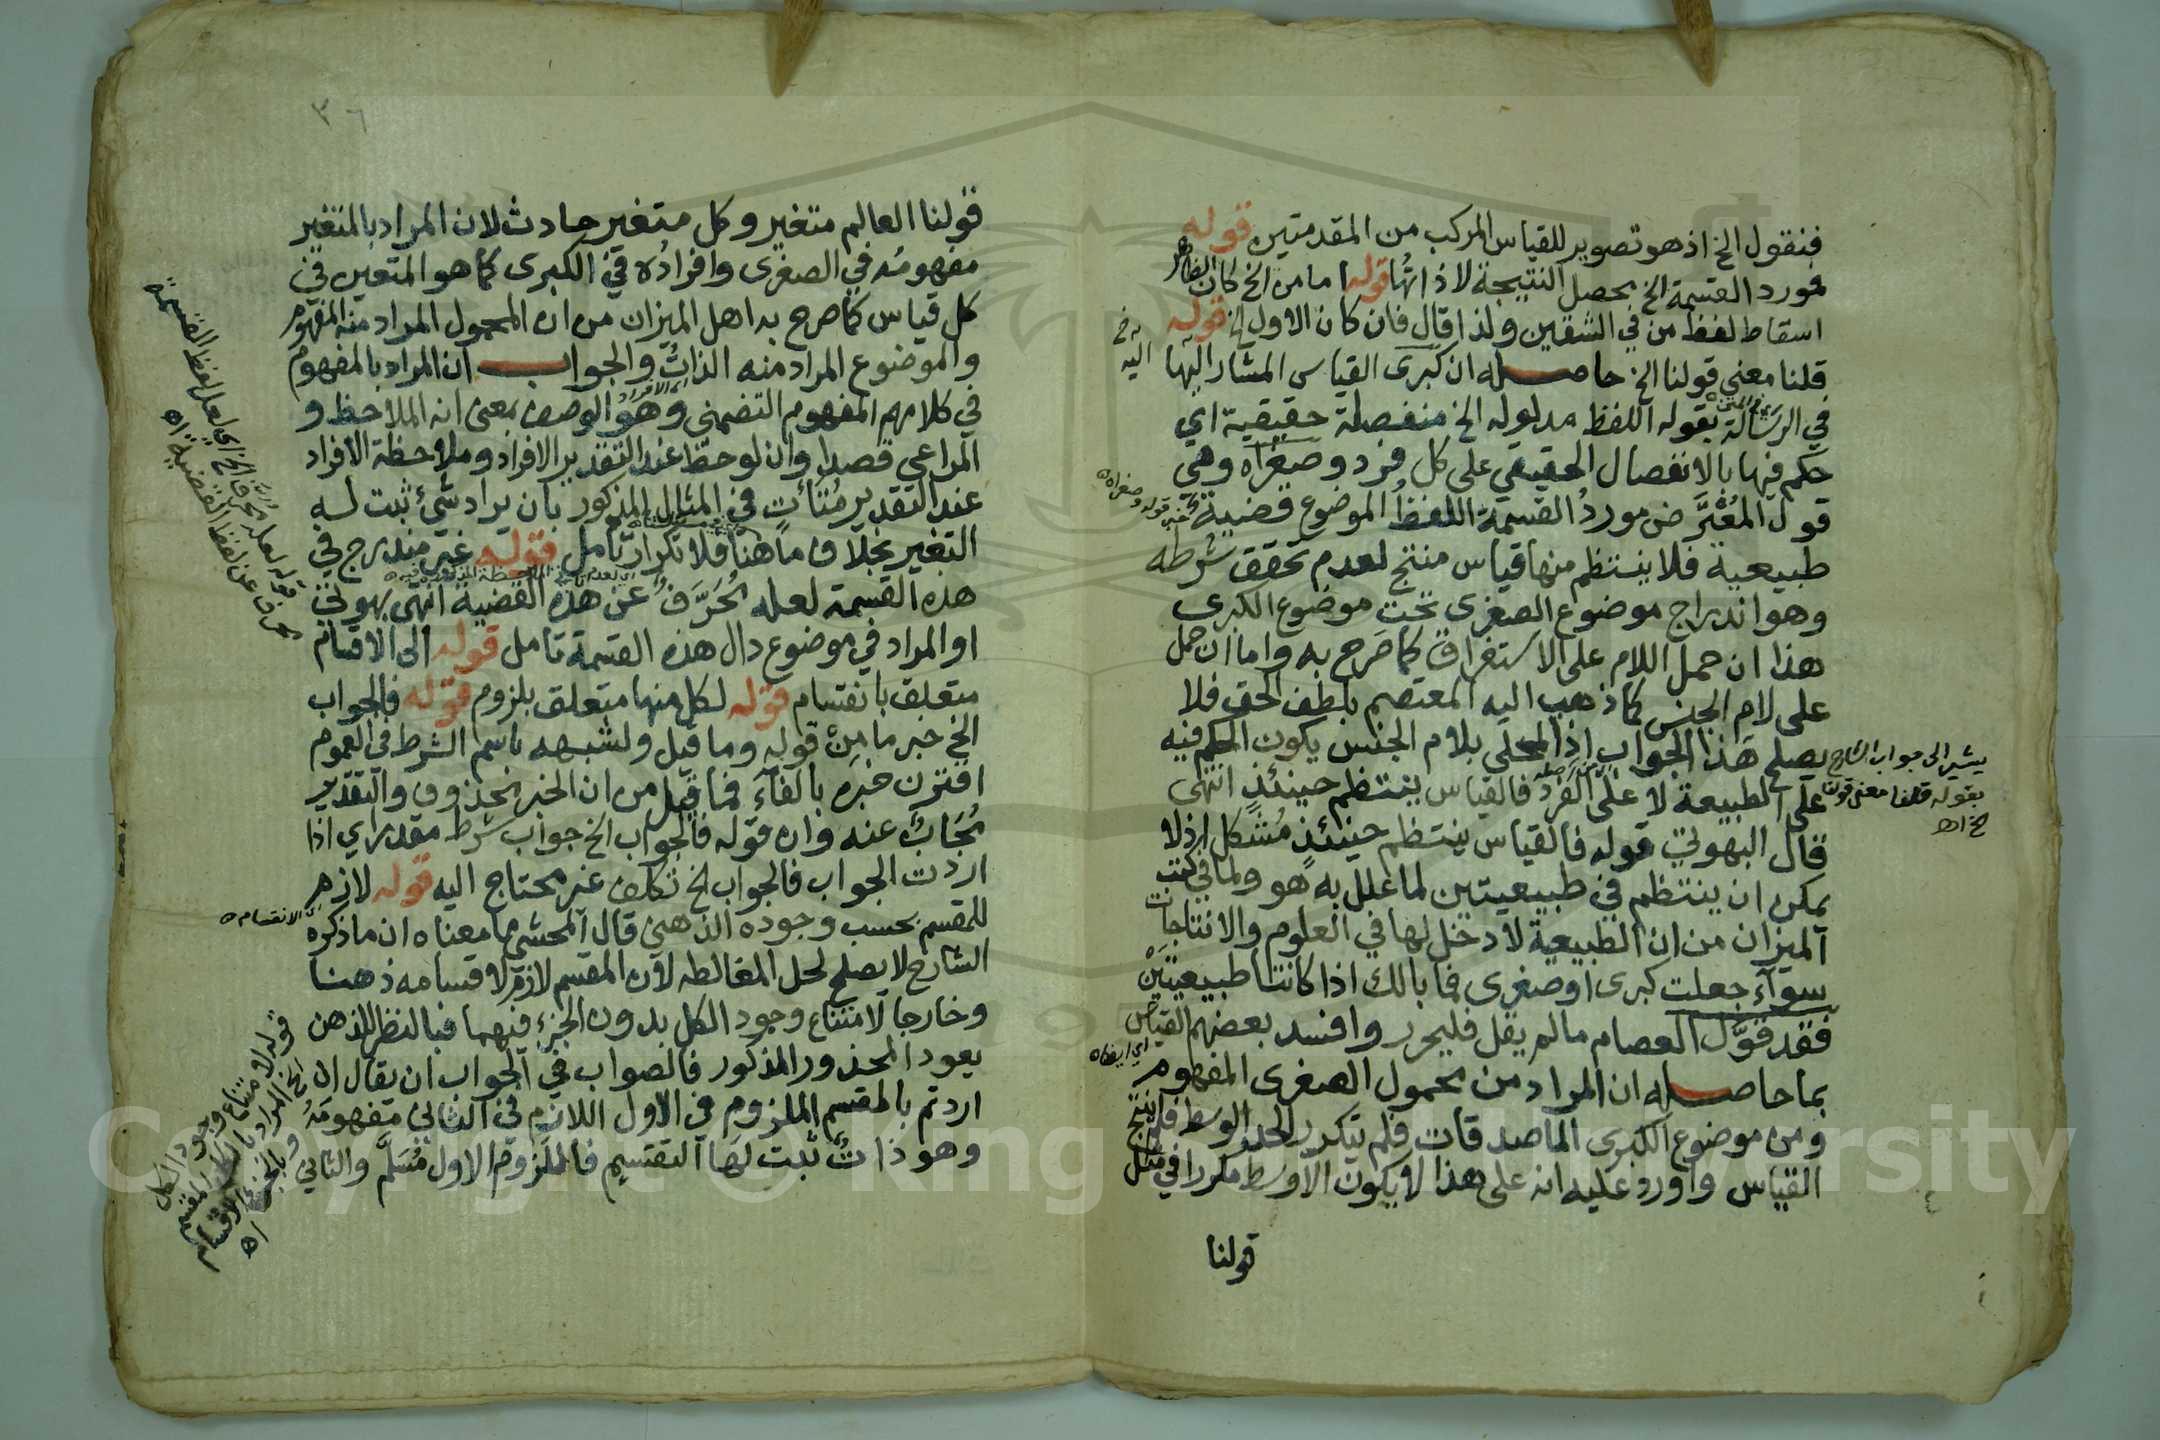 فنقول الخ اذ هو تصوير للقياس المركب من المقدمتين قوله
مورد القسمة الخ محصل النتيجة لا ذاتها قوله اما من الخ كان الظاهر
اسقاط لفظ من في الشقين ولذا قال فان كان الاول الخ قوله
قلنا معنى قولنا الخ حاصله ان كبرى القياس المشار اليها
في الرسالة بقوله اللفظ مدلوله الخ منفصلة حقيقية اي
حكم فيها بالانفصال الحقيقي على كل فرد وصغراه وهي
قول المعترض مورد القسمة اللفظ الموضوع قضية
طبيعية فلا ينتظم منها قياس منتج لعدم تحقق شرطه
وهو اندراج موضوع الصغرى تحت موضوع الكبرى
هذا ان حمل اللام على الاستغراق كما صرح به واما ان حمل
على لام الجنس كما ذهب اليه المعتصم بلطف الحق فلا
يصلح هذا الجواب اذ المحلى بلام الجنس يكون الحكم فيه
على الطبيعة لا على الفرد فالقياس ينتظم حينئذ انتهى
قال البهوتي قوله فالقياس ينتظم حينئذ مشكل اذ لا
يمكن ان ينتظم في طبيعيتين لما علل به هو ولما في كتب
الميزان من ان الطبيعية لا دخل لها في العلوم والانتاجات
سواء جعلت كبرى او صغرى فما بالك اذا كانتا طبيعيتين
فقد قول العصام ما لم يقل فليحرر وافسد بعضهم القياس
بما حاصله ان المراد من محمول الصغرى المفهوم
ومن موضوع الكبرى الماصدقات فلم يتكرر الحد الوسط فلم ينتج
القياس واورد عليه انه على هذا لا يكون الاوسط مكررا في مثل
قولنا
به خ
اليه
يشير الى جواب الشارح
بقوله قلنا معنى قولنا
الخ اه
اي ايضا اه
٣٦
قولنا العالم متغير وكل متغير حادث لان المراد بالمتغير
مفهومه في الصغرى وافراده في الكبرى كما هو المتعين في
كل قياس كما صرح به اهل الميزان من ان المحمول المراد منه المفهوم
والموضوع المراد منه الذات والجواب ان المراد بالمفهوم
في كلامهم المفهوم التضمني وهو الوصف بمعنى انه الملاحظ و
المراعي قصدا وان لوحظ عند التقدير الافراد وملاحظة الافراد
عند التقدير متأت في المثال المذكور بان يراد شئ ثبت له
التغير بخلاف ما هنا فلا تكرار تأمل قوله غير مندرج في
هذه القسمة لعله محرف عن هذه القضية انتهى بهوتي
او المراد في موضوع دال هذه القسمة تامل قوله الى الاقسام
متعلق بانقسام قوله لكل منها متعلق بلزوم قوله فالجواب
الخ خبر ما من قوله وما قيل ولشبهه باسم الشرط في العموم
اقترن خبره بالفاء فما قيل من ان الخبر محذوف والتقدير
مجاب عنه وان قوله فالجواب الخ جواب شرط مقدر اي اذا
اردت الجواب فالجواب الخ تكلف غير محتاج اليه قوله لازم
للمقسم بحسب وجوده الذهني قال المحشي ما معناه ان ما ذكره
الشارح لا يصلح لحل المغالطه لان المقسم لازم لاقسامه ذهنا
وخارجا لامتناع وجود الكل بدون الجزء فيهما فبالنظر للذهن
يعود المحذور المذكور فالصواب في الجواب ان يقال ان
اردتم بالمقسم الملزوم في الاول اللازم في الثاني مفهومه
وهو ذات ثبت لها التقسيم فالملزوم الاول مسلم والثاني
اي الانقسام ه
قوله لعله محرف الخ اي لعل لفظ القسمة
محرف عن لفظ القضية اه
قوله لامتناع وجود الكل
الخ المراد بالكل المقسم
وبالجزء الاقسام
اه